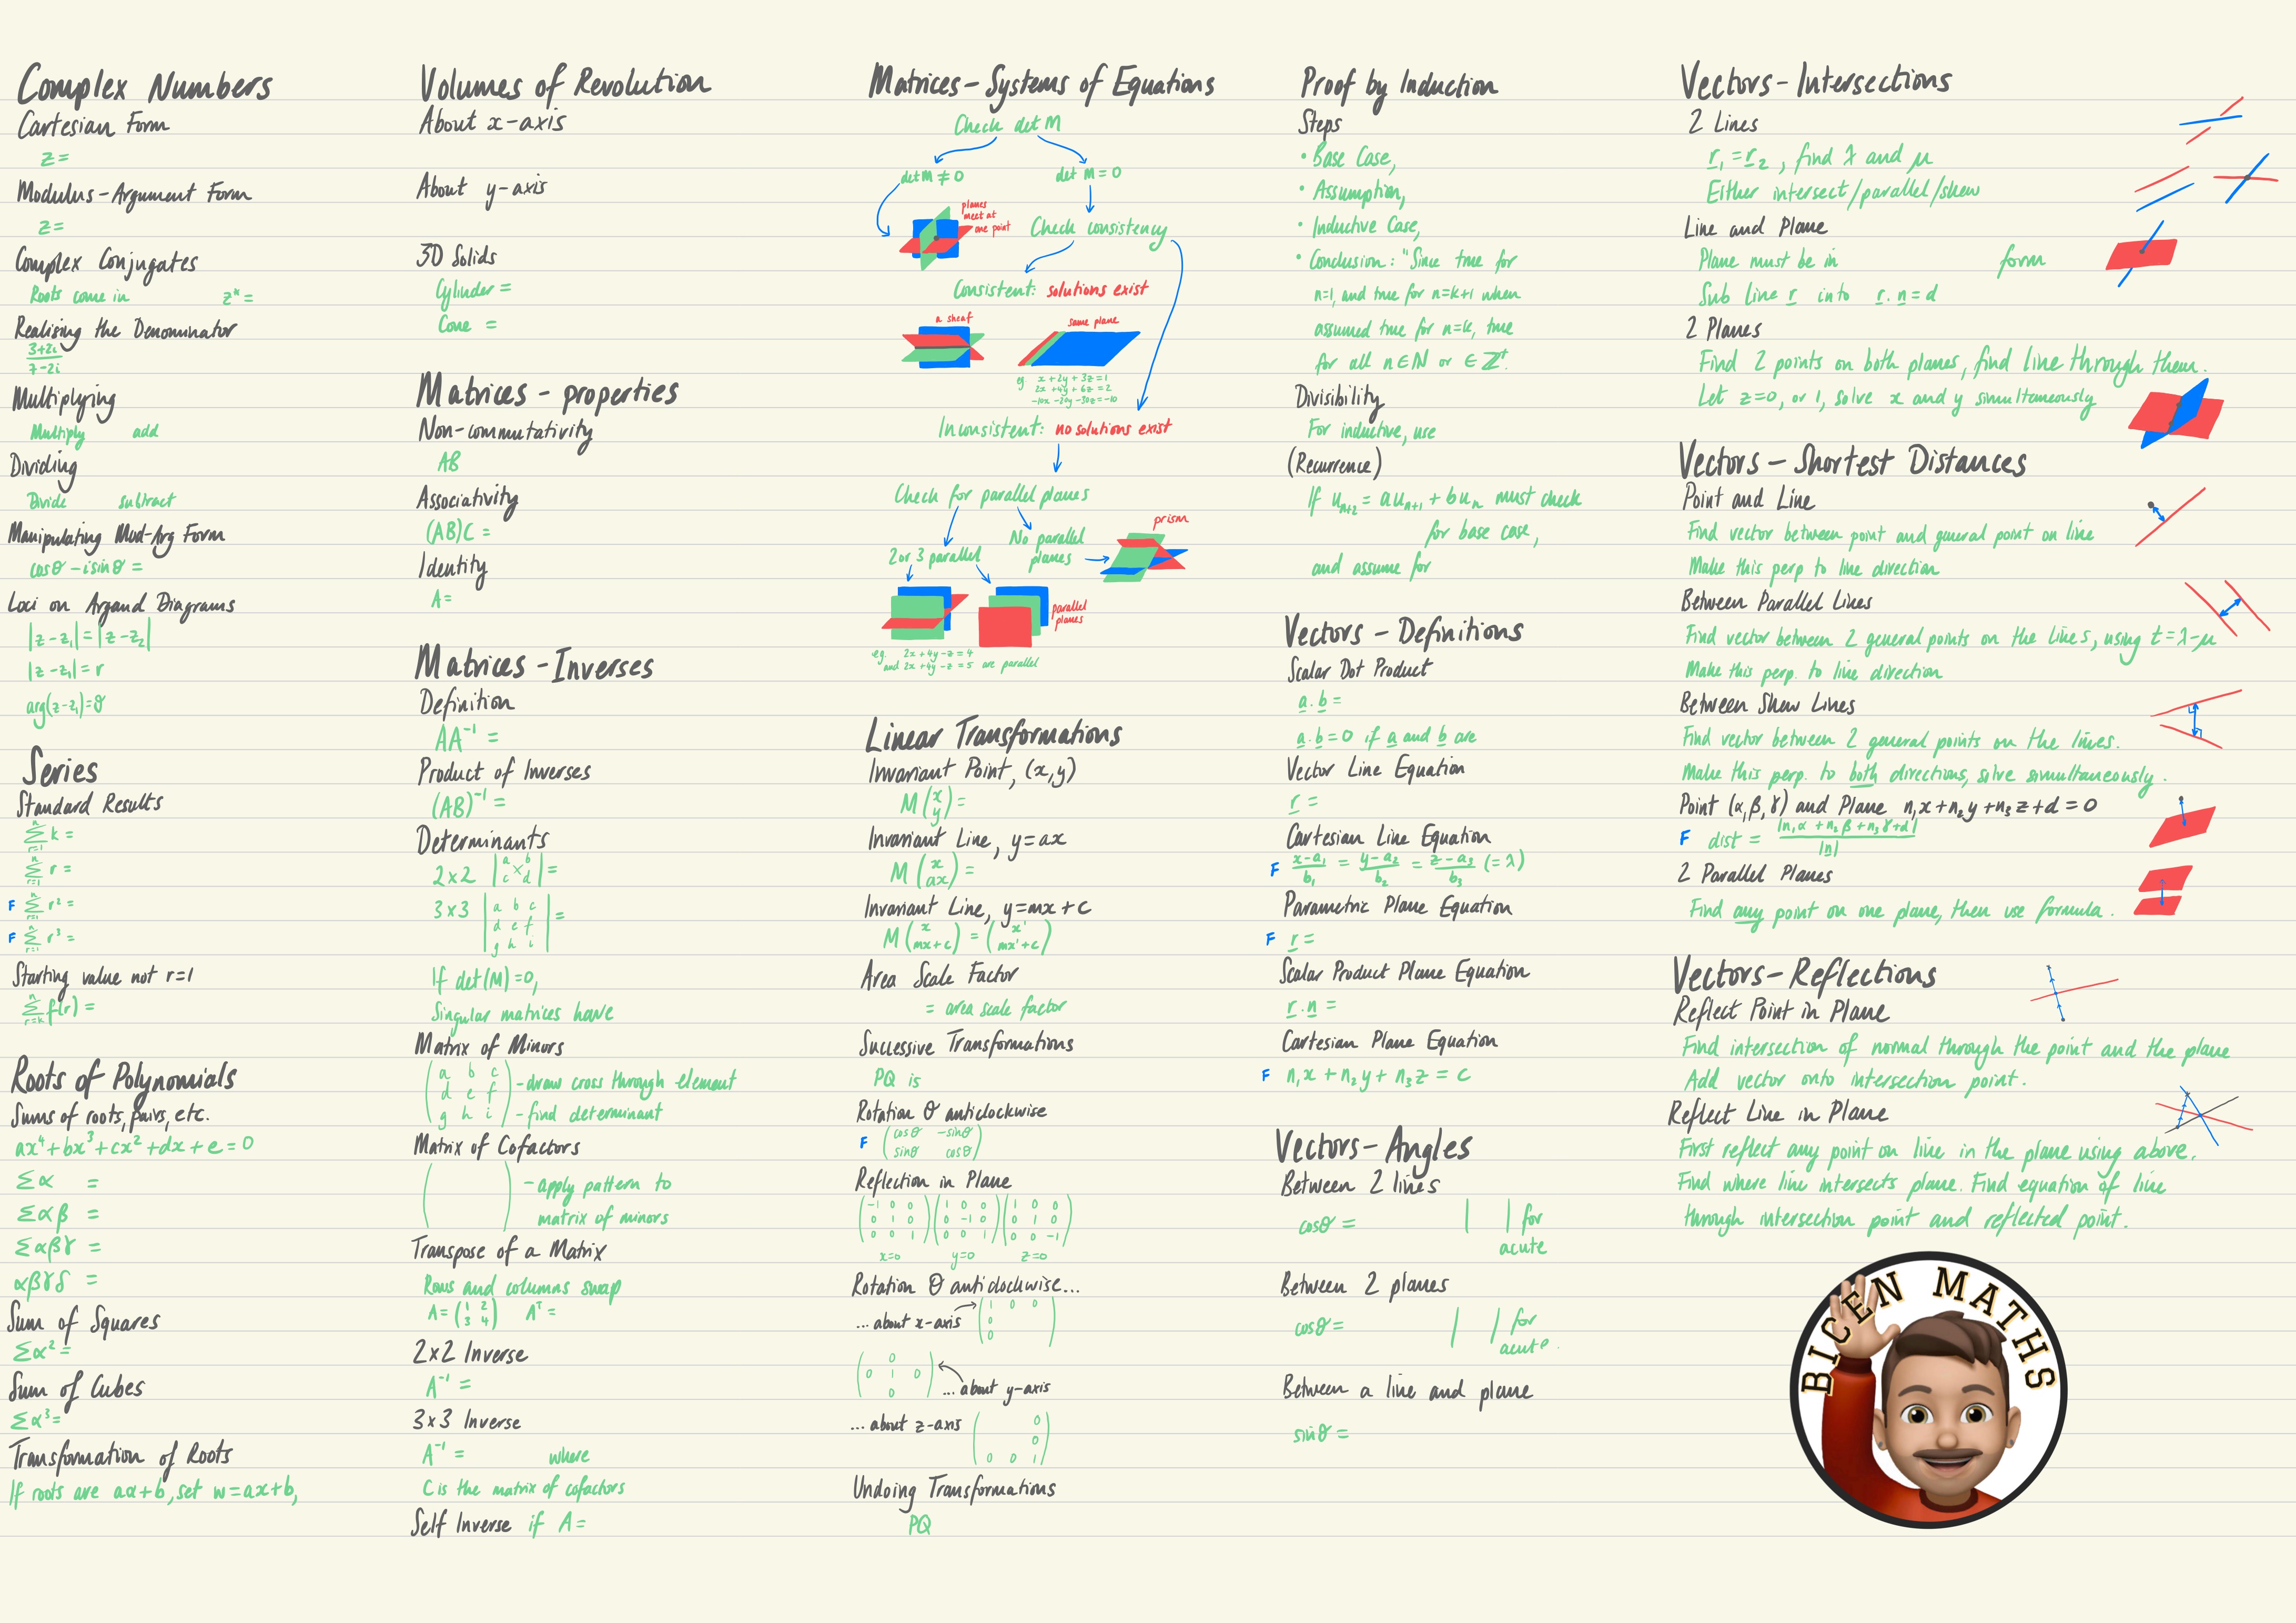 Complex Numbers
Cartesian Form
z =
Modulus - Argument Form
z =
Complex Conjugates
Roots come in z* =
Realising the Denominator
3+2i
7-2i
Multiplying
Multiply add
Dividing
Divide subtract
Manipulating Mod-Arg Form
cosθ - isinθ =
Loci on Argand Diagrams
|z - z₁| = |z - z₂|
|z - z₁| = r
arg(z - z₁) = θ
Series
Standard Results
n
Σ k =
r=1
n
Σ r =
r=1
n
F Σ r² =
r=1
n
F Σ r³ =
r=1
Starting value not r=1
n
Σ f(r) =
r=k
Roots of Polynomials
Sums of roots, pairs, etc.
ax⁴ + bx³ + cx² + dx + e = 0
Σα =
Σαβ =
Σαβγ =
αβγδ =
Sum of Squares
Σα² =
Sum of Cubes
Σα³ =
Transformation of Roots
If roots are aα+b, set w = ax+b,
Volumes of Revolution
About x-axis
About y-axis
3D Solids
Cylinder =
Cone =
Matrices - properties
Non-commutativity
AB
Associativity
(AB)C =
Identity
A =
Matrices - Inverses
Definition
AA⁻¹ =
Product of Inverses
(AB)⁻¹ =
Determinants
2×2 |a b
c d| =
3×3 |a b c
d e f
g h i| =
If det(M) = 0,
Singular matrices have
Matrix of Minors
(a b c - draw cross through element
d e f
g h i) - find determinant
Matrix of Cofactors
( ) - apply pattern to
matrix of minors
Transpose of a Matrix
Rows and columns swap
A = (1 2
3 4) Aᵀ =
2×2 Inverse
A⁻¹ =
3×3 Inverse
A⁻¹ = where
C is the matrix of cofactors
Self Inverse if A =
Matrices - Systems of Equations
Check det M
det M ≠ 0 det M = 0
planes
meet at
one point
Check consistency
Consistent: solutions exist
a sheaf same plane
eg. x + 2y + 3z = 1
2x + 4y + 6z = 2
-10x - 20y - 30z = -10
Inconsistent: no solutions exist
Check for parallel planes
prism
No parallel
planes
2 or 3 parallel
parallel
planes
eg. 2x + 4y - z = 4
and 2x + 4y - z = 5 are parallel
Linear Transformations
Invariant Point, (x,y)
M (x
y) =
Invariant Line, y = ax
M (x
ax) =
Invariant Line, y = mx + c
M (x
mx+c) = (x'
mx'+c)
Area Scale Factor
= area scale factor
Successive Transformations
PQ is
Rotation θ anticlockwise
F (cosθ -sinθ
sinθ cosθ)
Reflection in Plane
(-1 0 0
0 1 0
0 0 1) (1 0 0
0 -1 0
0 0 1) (1 0 0
0 1 0
0 0 -1)
x=0 y=0 z=0
Rotation θ anticlockwise...
...about x-axis (1 0 0
0
0 )
( 0
0 1 0
0 ) ...about y-axis
...about z-axis ( 0
0
0 0 1)
Undoing Transformations
PQ
Proof by Induction
Steps
• Base Case,
• Assumption,
• Inductive Case,
• Conclusion: "Since true for
n=1, and true for n=k+1 when
assumed true for n=k, true
for all n∈ℕ or ∈ℤ⁺.
Divisibility
For inductive, use
(Recurrence)
If uₙ₊₂ = auₙ₊₁ + buₙ must check
for base case,
and assume for
Vectors - Definitions
Scalar Dot Product
a.b =
a.b = 0 if a and b are
Vector Line Equation
r =
Cartesian Line Equation
F x-a₁/b₁ = y-a₂/b₂ = z-a₃/b₃ (=λ)
Parametric Plane Equation
F r =
Scalar Product Plane Equation
r.n =
Cartesian Plane Equation
F n₁x + n₂y + n₃z = c
Vectors - Angles
Between 2 lines
cosθ = | | for
acute
Between 2 planes
cosθ = | | for
acute.
Between a line and plane
sinθ =
Vectors - Intersections
2 Lines
r₁ = r₂, find λ and μ
Either intersect/parallel/skew
Line and Plane
Plane must be in form
Sub line r into r.n = d
2 Planes
Find 2 points on both planes, find line through them.
Let z=0, or 1, solve x and y simultaneously
Vectors - Shortest Distances
Point and Line
Find vector between point and general point on line
Make this perp to line direction
Between Parallel Lines
Find vector between 2 general points on the lines, using t = λ-μ
Make this perp. to line direction
Between Skew Lines
Find vector between 2 general points on the lines.
Make this perp. to both directions, solve simultaneously.
Point (α,β,γ) and Plane n₁x + n₂y + n₃z + d = 0
F dist = |n₁α + n₂β + n₃γ + d|
|n|
2 Parallel Planes
Find any point on one plane, then use formula.
Vectors - Reflections
Reflect Point in Plane
Find intersection of normal through the point and the plane
Add vector onto intersection point.
Reflect Line in Plane
First reflect any point on line in the plane using above.
Find where line intersects plane. Find equation of line
through intersection point and reflected point.
BICEN MATHS